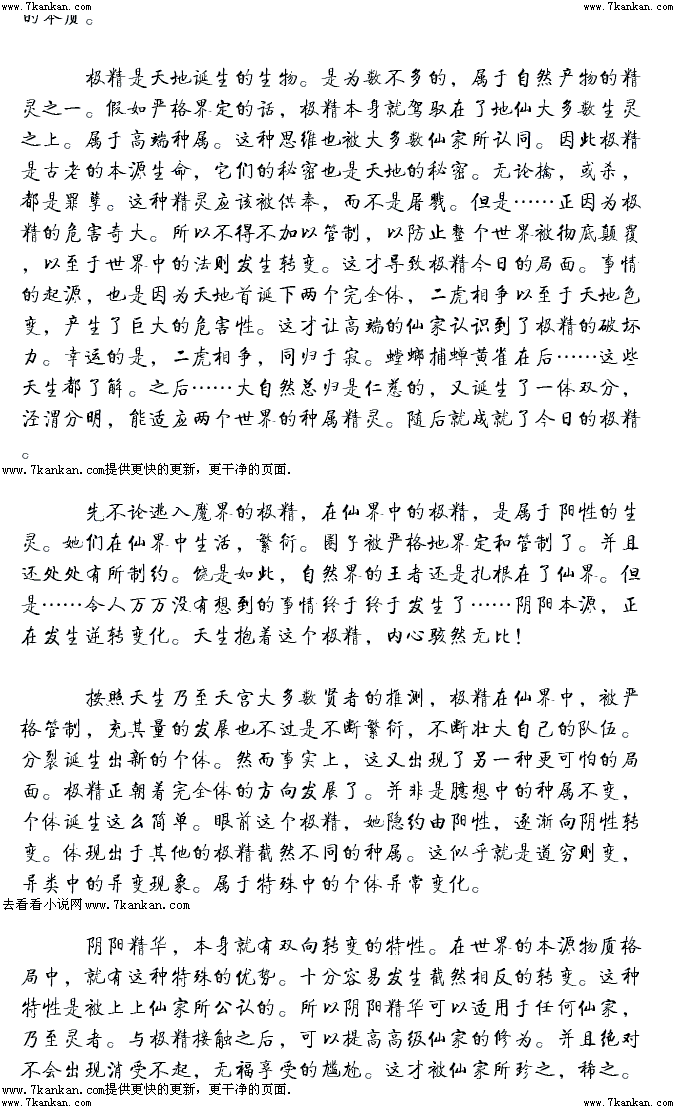 www.7kankan.com www.7kankan.com
的本质。
极精是天地诞生的生物。是为数不多的，属于自然产物的精
灵之一。假如严格界定的话，极精本身就驾驭在了地仙大多数生灵
之上。属于高端种属。这种思维也被大多数仙家所认同。因此极精
是古老的本源生命，它们的秘密也是天地的秘密。无论擒，或杀，
都是罪孽。这种精灵应该被供奉，而不是屠戮。但是……正因为极
精的危害奇大。所以不得不加以管制，以防止整个世界被彻底颠覆
，以至于世界中的法则发生转变。这才导致极精今日的局面。事情
的起源，也是因为天地首诞下两个完全体，二虎相争以至于天地色
变，产生了巨大的危害性。这才让高端的仙家认识到了极精的破坏
力。幸运的是，二虎相争，同归于寂。螳螂捕蝉黄雀在后……这些
天生都了解。之后……大自然总归是仁慈的，又诞生了一体双分，
泾渭分明，能适应两个世界的种属精灵。随后就成就了今日的极精
。
www.7kankan.com提供更快的更新，更干净的页面.
先不论逃入魔界的极精，在仙界中的极精，是属于阳性的生
灵。她们在仙界中生活，繁衍。圈子被严格地界定和管制了。并且
还处处有所制约。饶是如此，自然界的王者还是扎根在了仙界。但
是……令人万万没有想到的事情终于终于发生了……阴阳本源，正
在发生逆转变化。天生抱着这个极精，内心骇然无比！
按照天生乃至天宫大多数贤者的推测，极精在仙界中，被严
格管制，充其量的发展也不过是不断繁衍，不断壮大自己的队伍。
分裂诞生出新的个体。然而事实上，这又出现了另一种更可怕的局
面。极精正朝着完全体的方向发展了。并非是臆想中的种属不变，
个体诞生这么简单。眼前这个极精，她隐约由阳性，逐渐向阴性转
变。体现出于其他的极精截然不同的种属。这似乎就是道穷则变，
异类中的异变现象。属于特殊中的个体异常变化。
去看看小说网www.7kankan.com
阴阳精华，本身就有双向转变的特性。在世界的本源物质格
局中，就有这种特殊的优势。十分容易发生截然相反的转变。这种
特性是被上上仙家所公认的。所以阴阳精华可以适用于任何仙家，
乃至灵者。与极精接触之后，可以提高高级仙家的修为。并且绝对
不会出现消受不起，无福享受的尴尬。这才被仙家所珍之，稀之。
www.7kankan.com提供更快的更新，更干净的页面.
www.7kankan.com www.7kankan.com